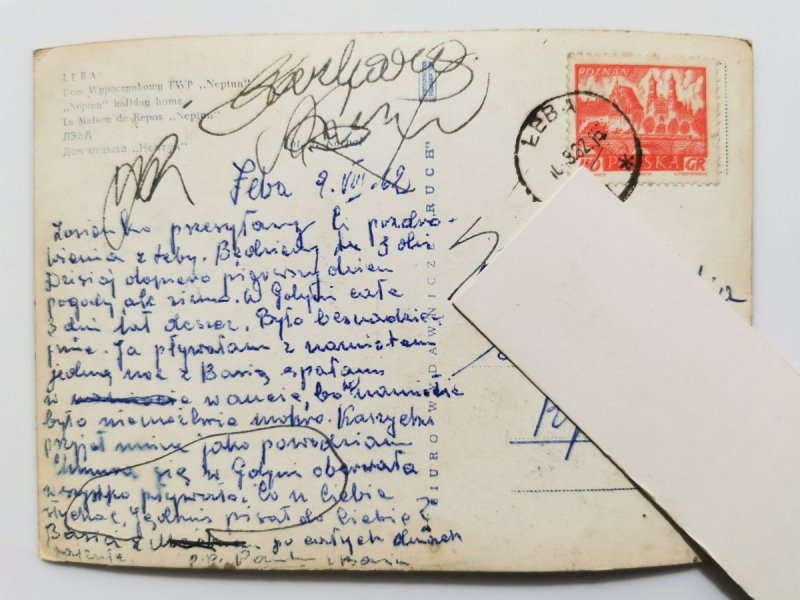 ŁEBA
Dom Wypoczynkowy FWP „Neptun"
„Neptun" holiday home
La Maison de Repos „Neptun"
ЛЭБА
Дом отдыха „Нептун"
BIURO WYDAWNICZE „RUCH"
POZNAŃ
40 POLSKA GR
ŁEBA
Łeba 9.VIII.62
przesyłamy Ci pozdro-
wienia z Łeby. Będziemy tu 3 dni
Dzisiaj dopiero pierwszy dzień
pogody ale zimno. W Gdyni całe
3 dni lał deszcz. Było beznadziej
nie. Ja pływałam z namiotem
jedną noc z Basią spałam
w wannie, bo w namiocie
było niemożliwie mokro.
przyjął mnie jako powodzian
się w Gdyni oberwała
wszystko pływało. Co u Ciebie
słychać. pisał do Ciebie?
Basia z po całych dniach